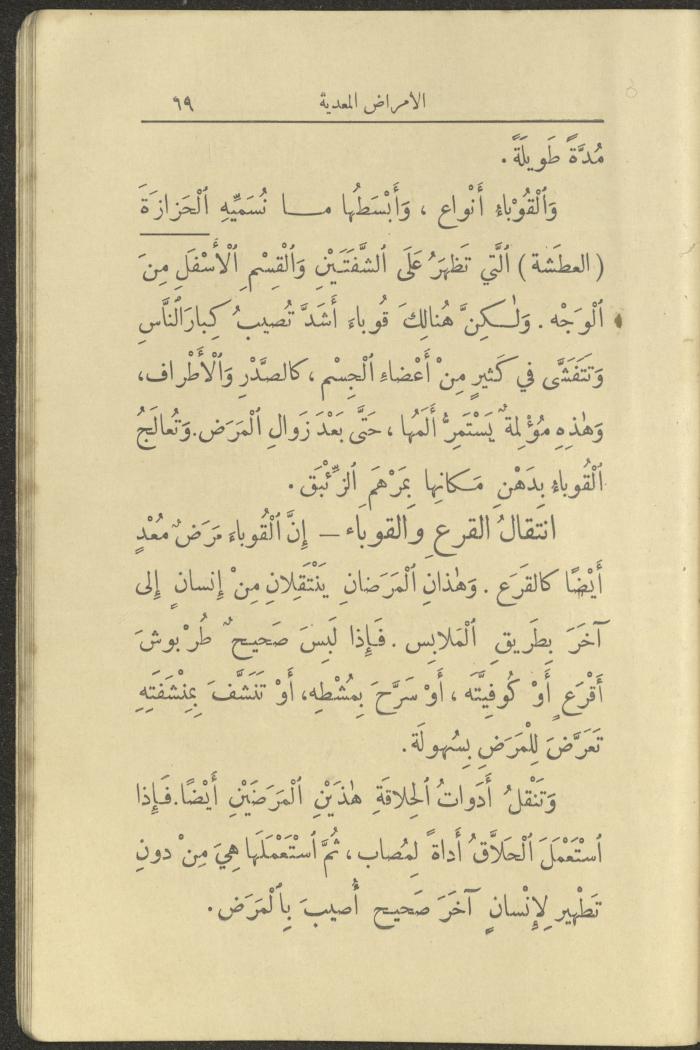 الأمراض المعدية ٦٩
مُدَّةً طَويلَةً.
وَٱلْقُوْباءُ أَنْواع ، وَأَبْسَطُها مـا نُسَمِّيهِ ٱلْحَزازَةَ
( العطَشة ) ٱلَّتي تَظهَرُ عَلَى ٱلشَّفَتَيْنِ وَٱلْقِسْمِ ٱلْأَسْفَلِ مِنَ
ٱلْوَجْه . وَلٰـكِنَّ هُنالِكَ قُوباءَ أَشَدَّ تُصيبُ كِبارَ ٱلنَّاسِ
وَتَتَفَشَّى في كَثيرٍ مِنْ أَعْضاءِ ٱلْجِسْم ، كالصَّدْرِ وَٱلْأَطْراف،
وَهٰذِهِ مُؤْلِمةٌ يَسْتَمِرُّ أَلَمُها ، حَتَّى بَعْدَ زَوالِ ٱلْمَرَض. وَتُعالَجُ
ٱلْقُوباءُ بِدَهْنِ مَكانِها بِمَرْهَمِ ٱلزِّئْبَق .
انتقالُ القرعِ والقوباء — إِنَّ ٱلْقُوباءَ مَرَضٌ مُعْدٍ
أَيْضًا كالقَرَع . وَهٰذانِ ٱلْمَرَضانِ يَنْتَقِلانِ مِنْ إِنسانٍ إِلى
آخَرَ بِطَريقِ ٱلْمَلابِس . فَإِذا لَبِسَ صَحيحٌ طُرْبوشَ
أَقْرَعٍ أَوْ كُوفِيَّتَه ، أَوْ سَرَّحَ بِمُشْطِه، أَوْ تَنَشَّفَ بِمِنْشَفَتِهِ
تَعَرَّضَ لِلْمَرَضِ بِسُهولَة.
وَتَنْقلُ أَدَواتُ ٱلْحِلاقَةِ هٰذَيْنِ ٱلْمَرَضَيْنِ أَيْضًا. فَإِذا
ٱسْتَعْمَلَ ٱلْحَلاَّقُ أَداةً لِمُصاب ، ثُمَّ ٱسْتَعْمَلَها هِيَ مِنْ دونِ
تَطْهيرٍ لِإِنْسانٍ آخَرَ صَحيحٍ أُصيبَ بِٱلْمَرَض .